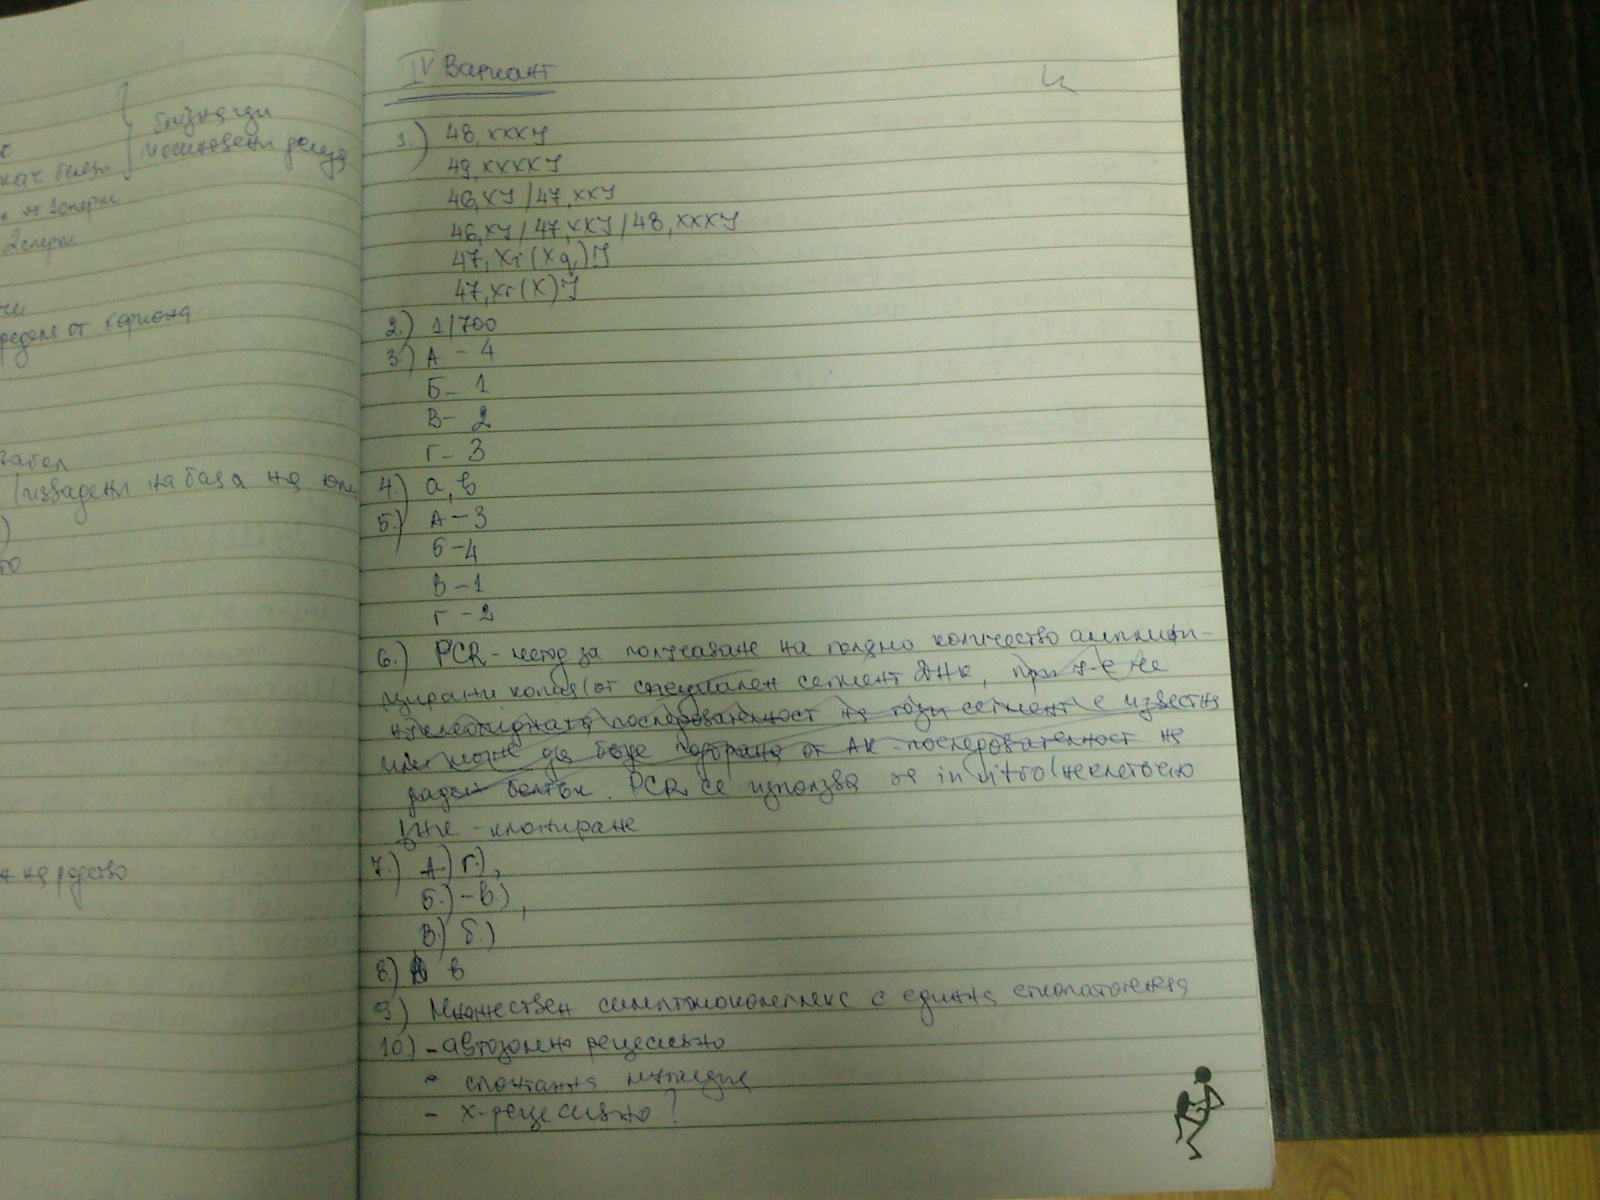 близнаци
посиновени деца
к
как белези
от 1 сперм
2 сперм
чи
ределя от хориона
забол
(извадени на база на
)
то
на родство
IV Вариант
1.) 48, XXXY
49, XXXXY
46, XY / 47, XXY
46, XY / 47, XXY / 48, XXXY
47, Xi(Xq)Y
47, Xr(X)Y
2.) 1/700
3.) А – 4
Б – 1
В – 2
Г – 3
4.) а, в
5.) А – 3
Б – 4
В – 1
Г – 2
6.) PCR – метод за получаване на голямо количество амплифи-
цирани копия (от специален сегмент ДНК, при к-е не
нуклеотидната последователност на този сегмент е известна
или може да бъде подбрана от АК-последователност на
даден белтък. PCR се използва за in vitro (неклетъчно
ДНК – клониране
7.) А.) Г.),
Б.) – в.),
В.) б.)
8.) в
9.) Множествен симптомокомплекс с единна етиопатогенеза
10.) – автозомно рецесивно
– спонтанна мутация
– X-рецесивно?